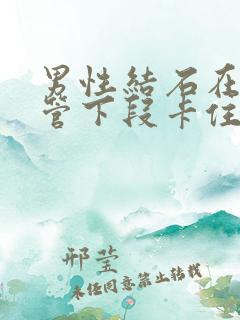 男性結石在
管下段卡住
邢莹
未经同意禁止转载